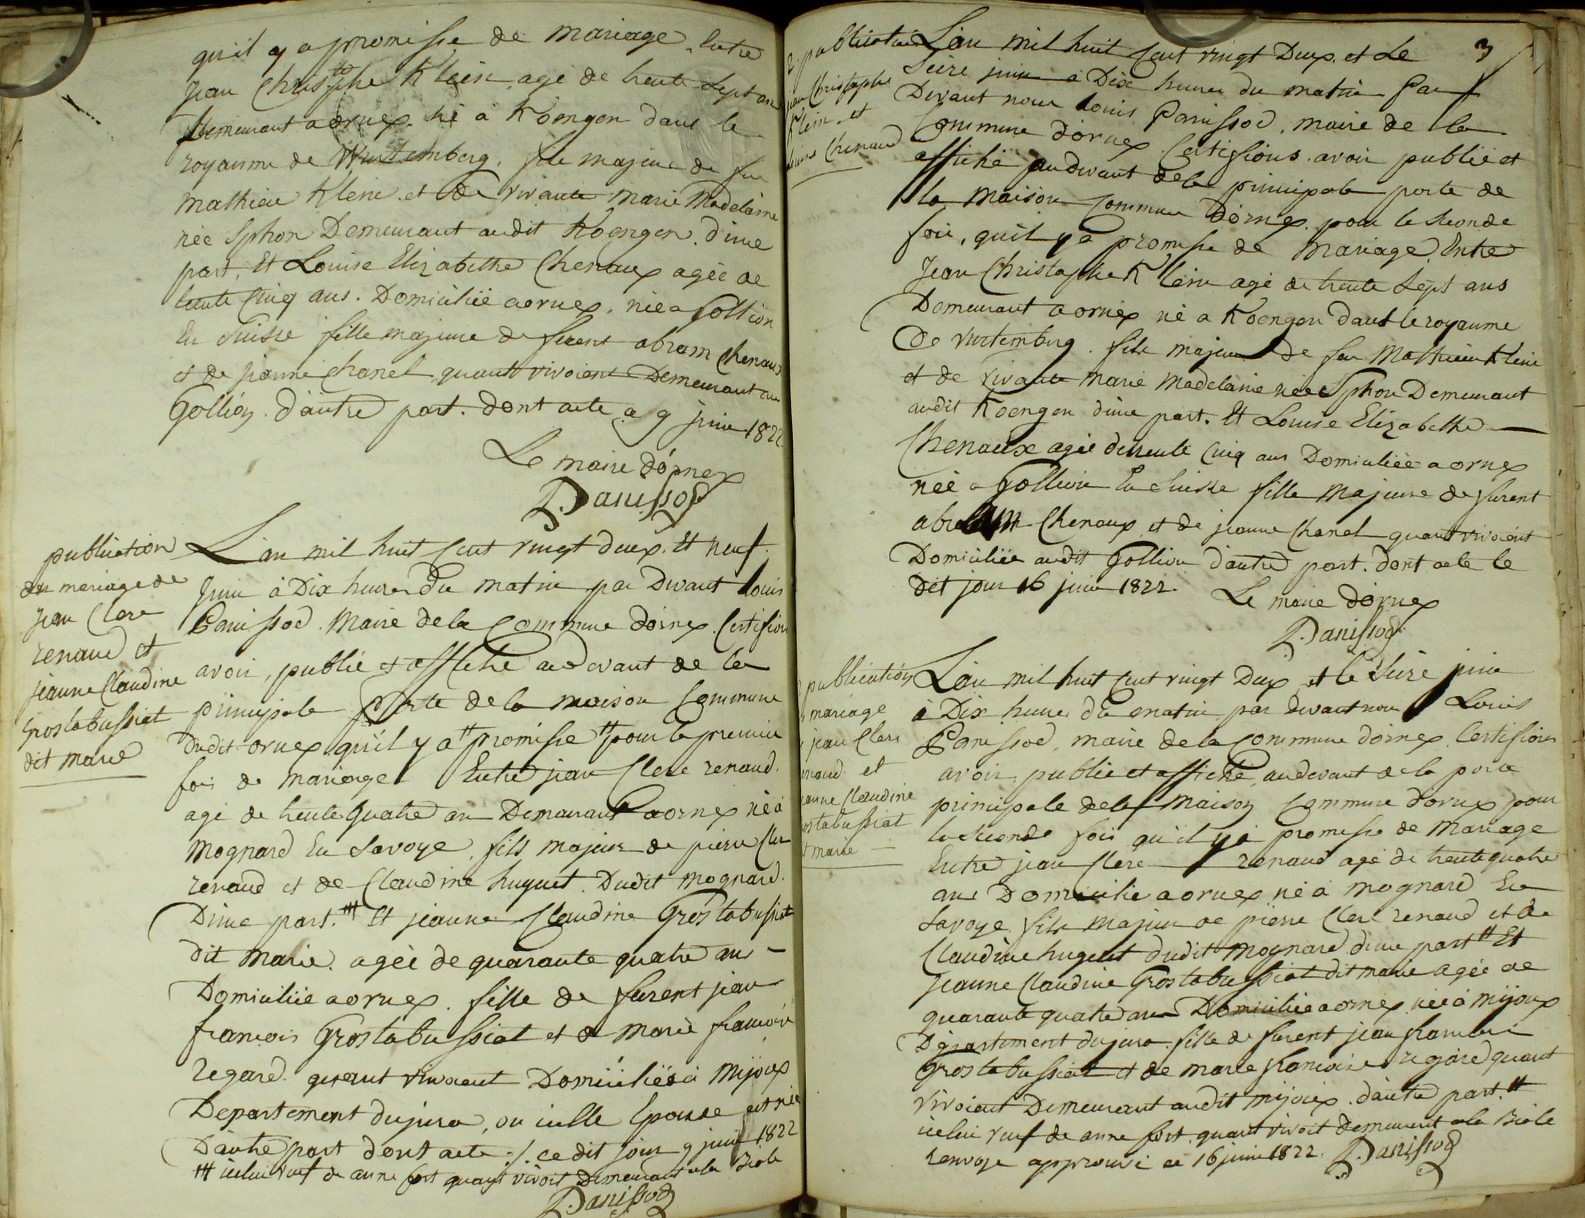 qu'il y a promesse de mariage Entre
Jean Christophe Klein agé de trente Sept ans
Demeurant a ornex né a Koengen dans le
royaume de Wurtemberg, fils majeur de feu
Mathieu Klene et de vivante Marie Madelaine
née Sphon Demeurant audit Koengen d'une
part, Et Louise Elizabethe Chenaux agée de
trente Cinq ans Domiciliée a ornex née a Gollion
En Suisse fille majeure de furent abram Chenaux
et de jeanne Chanel quant vivoient Demeurant au
Gollion d'autre part. dont acte a 9 juin 1822
Le maire d'ornex
Panissod
publication
du mariage de
Jean Clerc
renaud et
jeanne Claudine
Grostabussiat
dit marie
L'an mil huit Cent vingt deux Et neuf
Juin à Dix heures Du matin par Devant Louis
Panissod Maire de la Commune d'ornex Certifions
avoir publié et affiché au devant de la
principale porte de la maison Commune
Dudit ornex qu'il y a promesse pour la premiere
fois de mariage Entre jean Clerc renaud
agé de trente quatre ans Demeurant a ornex né a
Mognard En Savoye fils majeur de pierre Clerc
renaud et de Claudine huguet Dudit Mognard
D'une part. ## Et jeanne Claudine Grostabussiat
dit Marie agée de quarante quatre ans
Domiciliée a ornex fille de furent jean
francois Grostabussiat et de Marie francoise
Regard quant vivoient Domiciliés à Mijoux
Departement du jura, ou icelle Epouse est née
D'autre part dont acte ./. ce dit jour 9 juin 1822
## icelui veuf de anne fort quant vivoit Demeurant a la Biole
Panissod
3
2 publication
jean Christophe
Klein et
Louise Chenaud
L'an mil huit Cent vingt Deux et Le
Seize juin a Dix heures du matin Par
Devant nous Louis Panissod, maire de la
Commune d'ornex Certifions avoir publié et
affiché au devant de la principale porte de
la Maison Commune D'ornex pour la Seconde
fois, qu'il y a promesse de Mariage Entre
Jean Christophe Klein agé de trente Sept ans
Demeurant a ornex né a Koengen dans le royaume
De Vurtemberg fils majeur de feu Mathieu Klein
et de vivante Marie Madelaine née Sphon Demeurant
audit Koengen d'une part. Et Louise Elizabethe
Chenaux agée de trente Cinq ans Domiciliée a ornex
née a Gollion En Suisse fille Majeure de furent
abram Chenaux et de jeanne Chanel quant vivoient
Domiciliés audit Gollion d'autre part. dont acte le
dit jour 16 juin 1822
Le maire d'ornex
Panissod
2 publication
mariage
jean Clerc
renaud et
jeanne Claudine
Grostabussiat
dit marie
L'an mil huit Cent vingt Deux et le Seize juin
à Dix heures Du matin par devant nous Louis
Panissod, maire de la Commune d'ornex Certifions
avoir publié et affiché au devant de la porte
principale de la Maison Commune d'ornex pour
la Seconde fois qu'il y a promesse de Mariage
Entre jean Clerc renaud agé de trente quatre
ans Domicilié a ornex né à Mognard En
Savoye fils majeur de pierre Clerc renaud et de
Claudine huguet dudit Mognard d'une part ## Et
Jeanne Claudine Grostabussiat dit marie agée de
quarante quatre ans Domiciliée a ornex née à Mijoux
Département du jura fille de furent jean francois
Grostabussiat et de marie francoise regard quant
vivoient Demeurant audit mijoux d'autre part. ##
icelui veuf de anne fort quant vivoit demeurant a la Biole
renvoye approuvé ce 16 juin 1822. Panissod